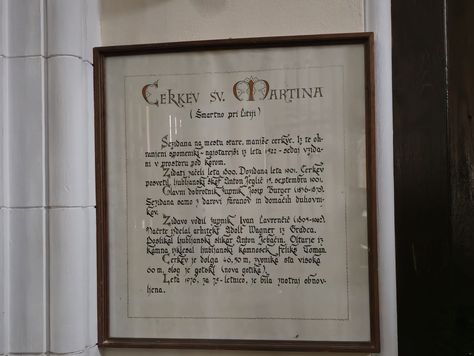 Cerkev sv. Martina
(Šmartno pri Litiji)
Sezidana na mestu stare, manjše cerkve. Iz te oh-
ranjeni spomeniki - najstarejši iz leta 1522 - sedaj vzida-
ni v prostoru pod korom.
Zidati začeli leta 1900. Dozidana leta 1901. Cerkev
posvetil ljubljanski škof Anton Jeglič 15. septembra 1901.
Glavni dobrotnik župnik Josip Burger
Sezidana samo z darovi faranov in domačih duhovni-
kov.
Zidavo vodil župnik Ivan Lavrenčič
Načrte izdelal arhitekt Adolf Wagner iz Gradca.
Poslikal ljubljanski slikar Anton Jebačin. Oltarje iz
kamna izklesal ljubljanski kamnosek Feliks Toman.
Cerkev je dolga 40,50 m, zvonika sta visoka
m, slog je gotski (nova gotika).
Leta 1976, za 75-letnico, je bila znotraj obnov-
ljena.